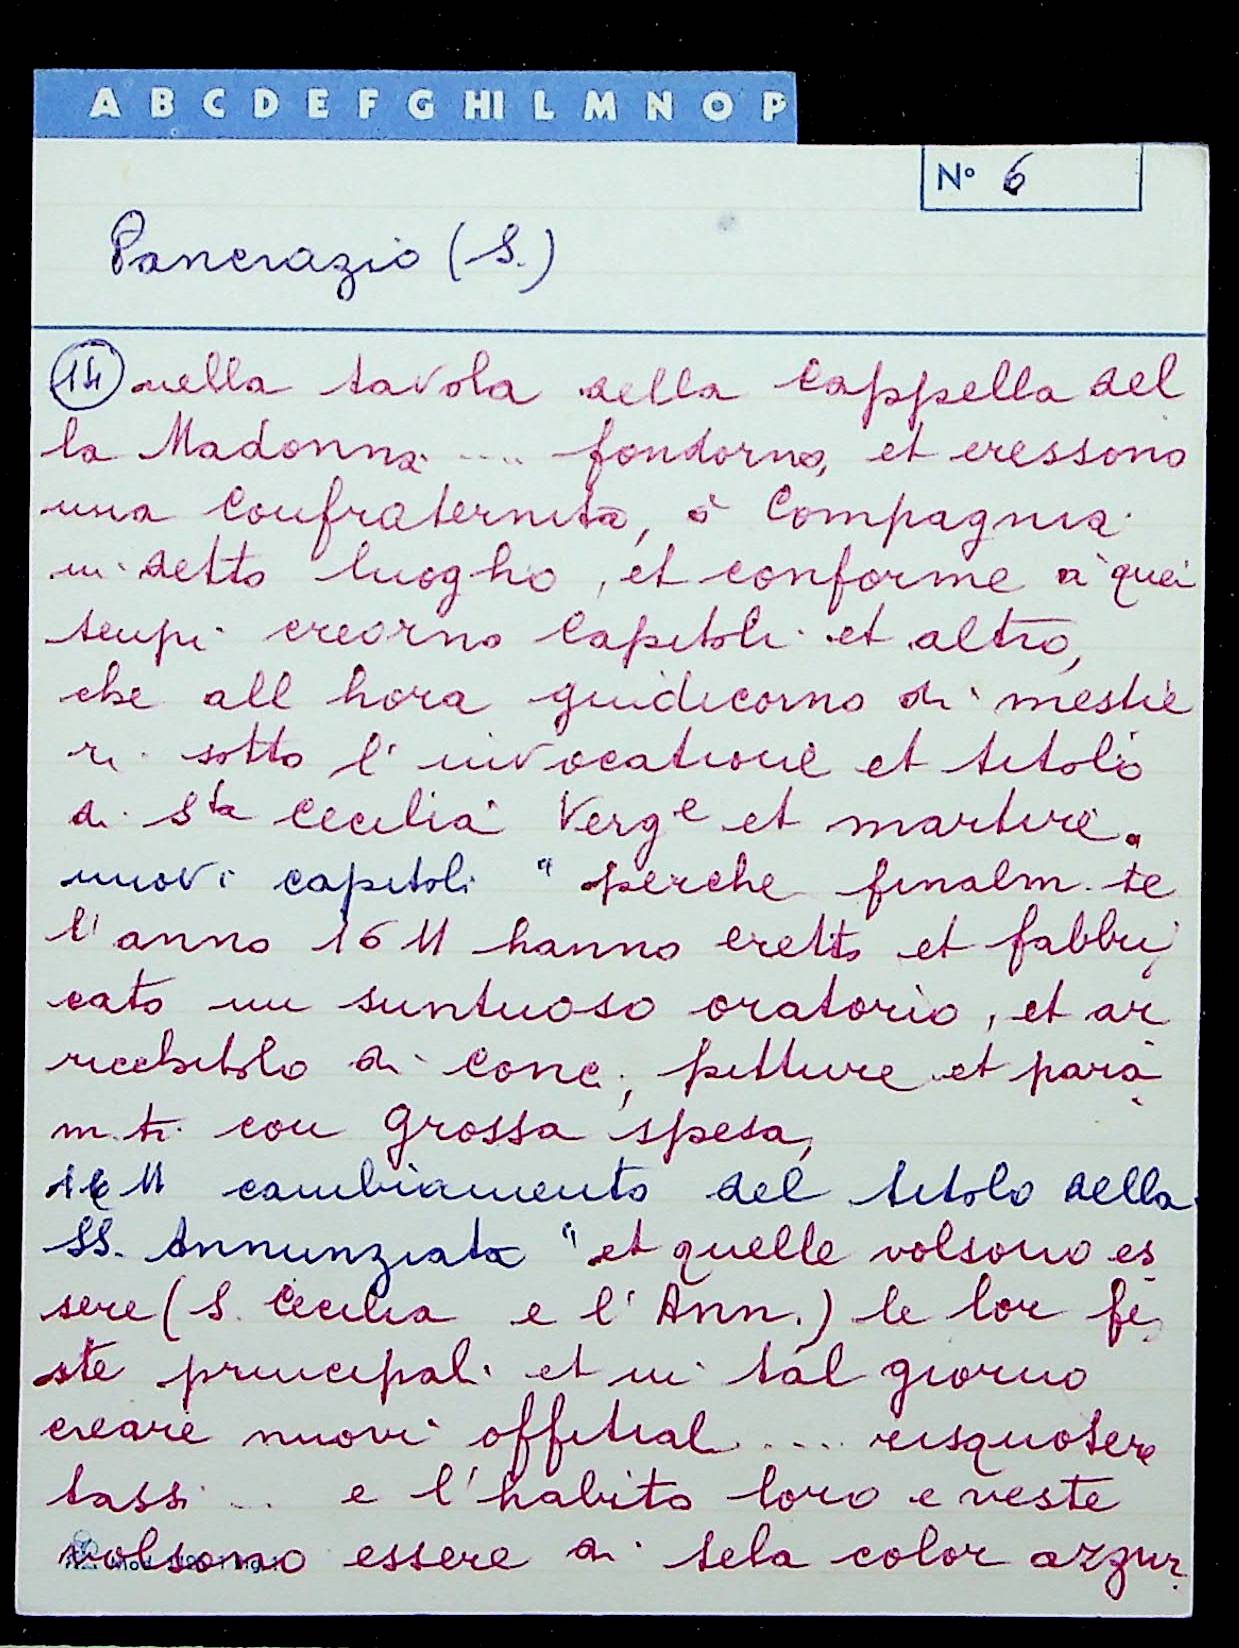 A B C D E F G HI L M N O P
N° 6
Pancrazio (S.)
14 nella tavola della Cappella del
la Madonna .... fondorno, et eressono
una Confraternita, ò Compagnia
in detto luogho, et conforme a quei
tempi creorno Capitoli et altro,
che all hora giudicorno di mestie
ri sotto l'invocatione et titolo
di Sta Cecilia Verge et martire.
nuovi capitoli "perche finalm.te
l'anno 1611 hanno eretto et fabbri
cato un suntuoso oratorio, et ar
ricchitolo di conc, pitture et para
m.ti con grossa spesa,
1611 cambiamento del titolo della
SS. Annunziata "et quelle volsono es
sere (S. Cecilia e l'Ann.) le lor fe
ste principali et in tal giorno
creare nuovi offitiali .... risquotere
tassi ... e l'habito loro e veste
volsono essere di tela color azzur